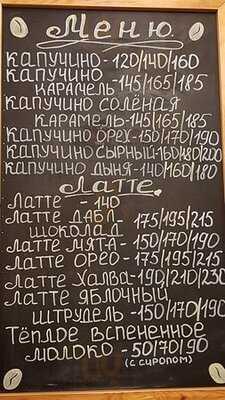 Меню.
Капучино - 120/140/160
Капучино
карамель - 145/165/185
Капучино солёная
карамель - 145/165/185
Капучино орех - 150/170/190
Капучино сырный - 160/180/200
Капучино дыня - 140/160/180
Латте.
Латте - 140
Латте дабл
шоколад 175/195/215
Латте мята - 150/170/190
Латте орео - 175/195/215
Латте халва - 190/210/230
Латте яблочный
штрудель - 150/170/190
Тёплое вспененное
молоко - 50/70/90
(с сиропом)